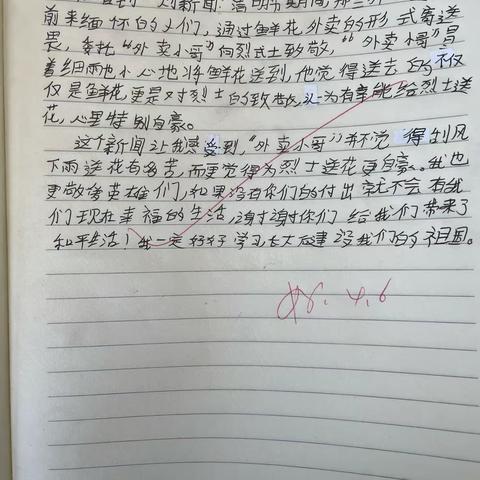 则新闻:清明节期间,那些
前来缅怀的人们,通过鲜花,外卖的形式寄送
畏,委托“外卖小哥”向烈士致敬,“外卖小哥”冒
着细雨小心地将鲜花送到,他觉得送去的不仅
仅是鲜花更是对烈士的致敬,认为有幸能给烈士送
花,心里特别自豪。
这个新闻让我感受到,“外卖小哥”并不觉得刮风
下雨送花有多苦,而更觉得为烈士送花更自豪。我也
更敬佬英雄们,如果没有你们的付出就不会有我
们现在幸福的生活,谢谢你们给我们带来了
和平生活!我一定好好学习长大后建设我们的祖国。
4.6